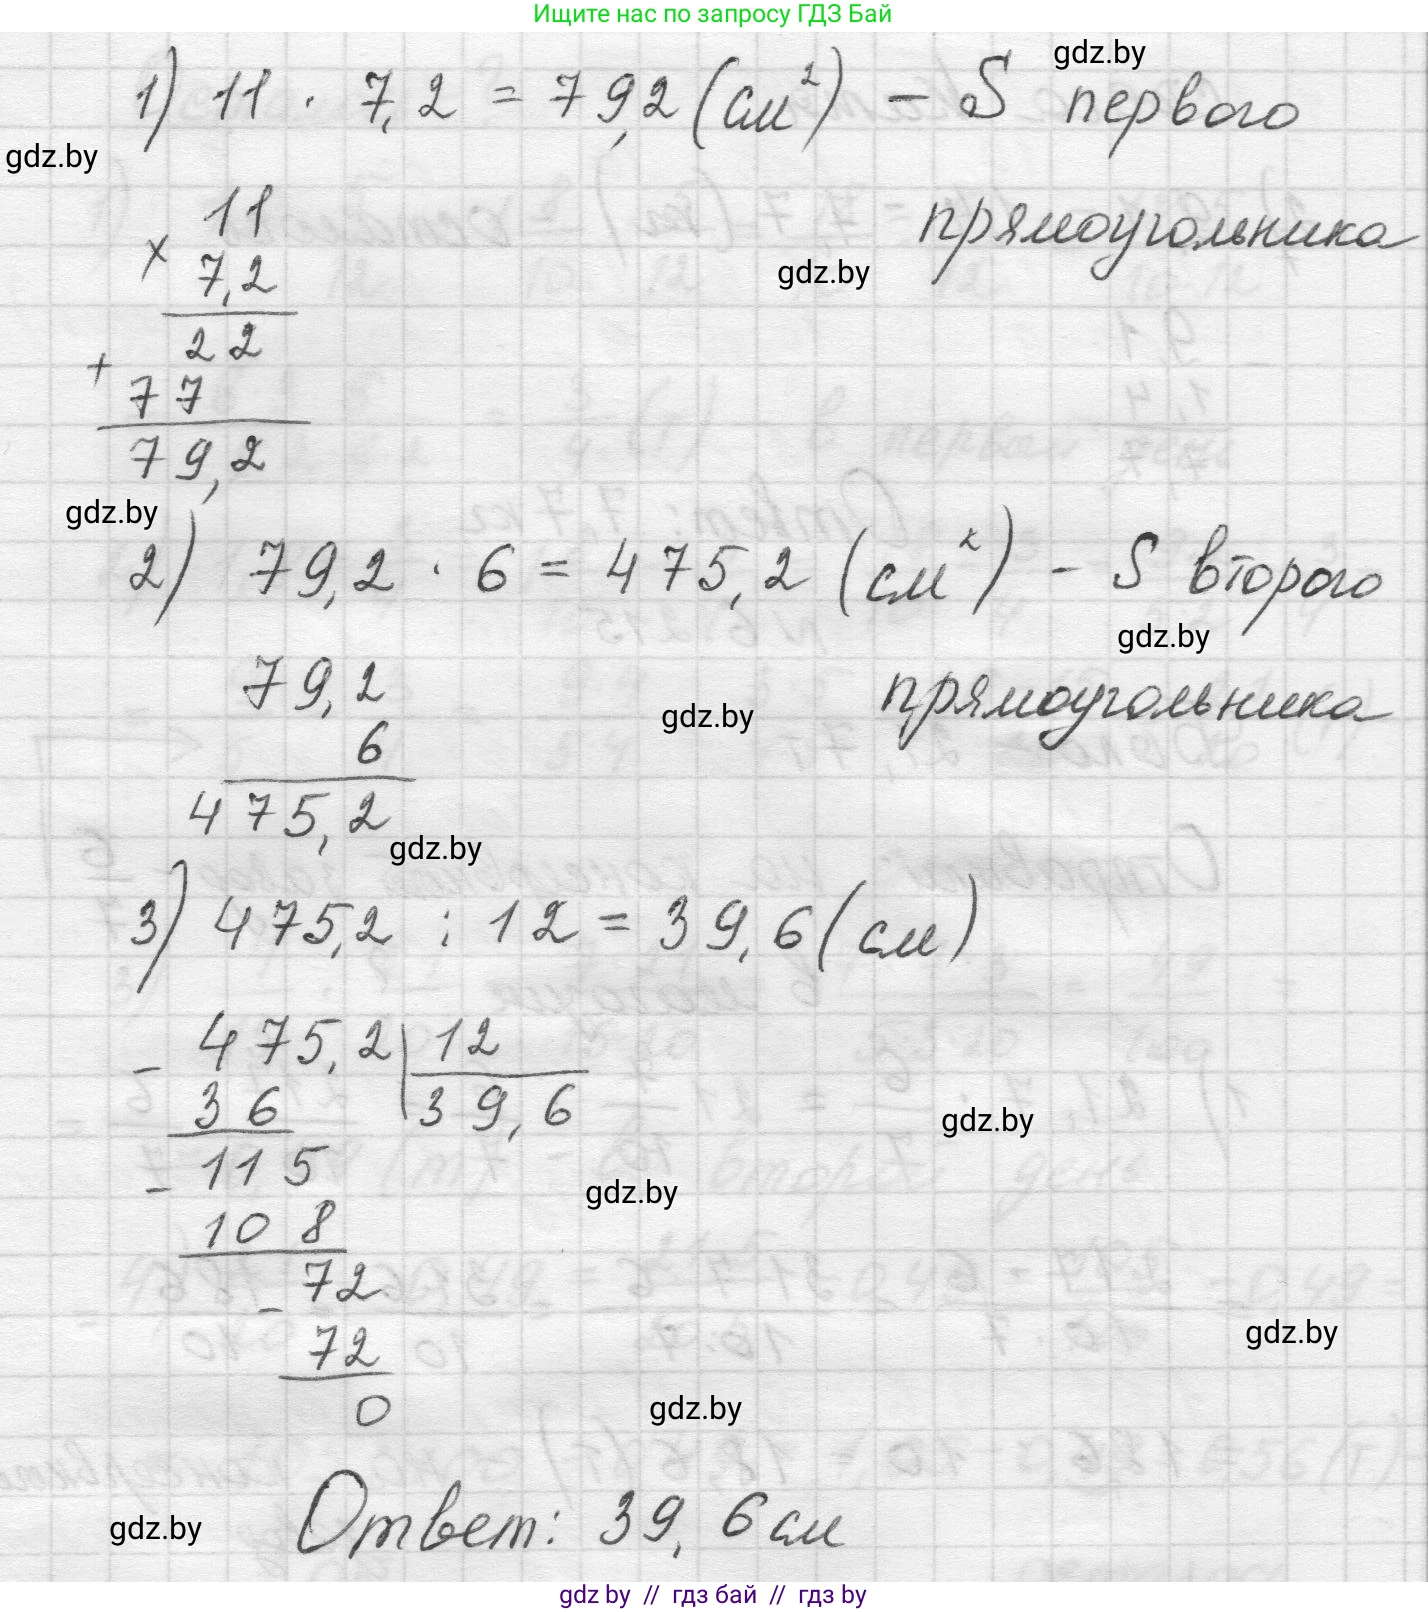 Ищите нас по запросу ГДЗ Бай
gdz.by
1) 11 · 7,2 = 79,2 (см²) – S первого
gdz.by
прямоугольника
11
× 7,2
gdz.by
22
+ 77
79,2
gdz.by
2) 79,2 · 6 = 475,2 (см²) – S второго
gdz.by
79,2
прямоугольника
gdz.by
6
475,2
gdz.by
3) 475,2 : 12 = 39,6 (см)
– 475,2 | 12
36 39,6
gdz.by
– 115
gdz.by
108
– 72
gdz.by
72
0
gdz.by
Ответ: 39,6 см
gdz.by
gdz by // гдз бай // гдз by